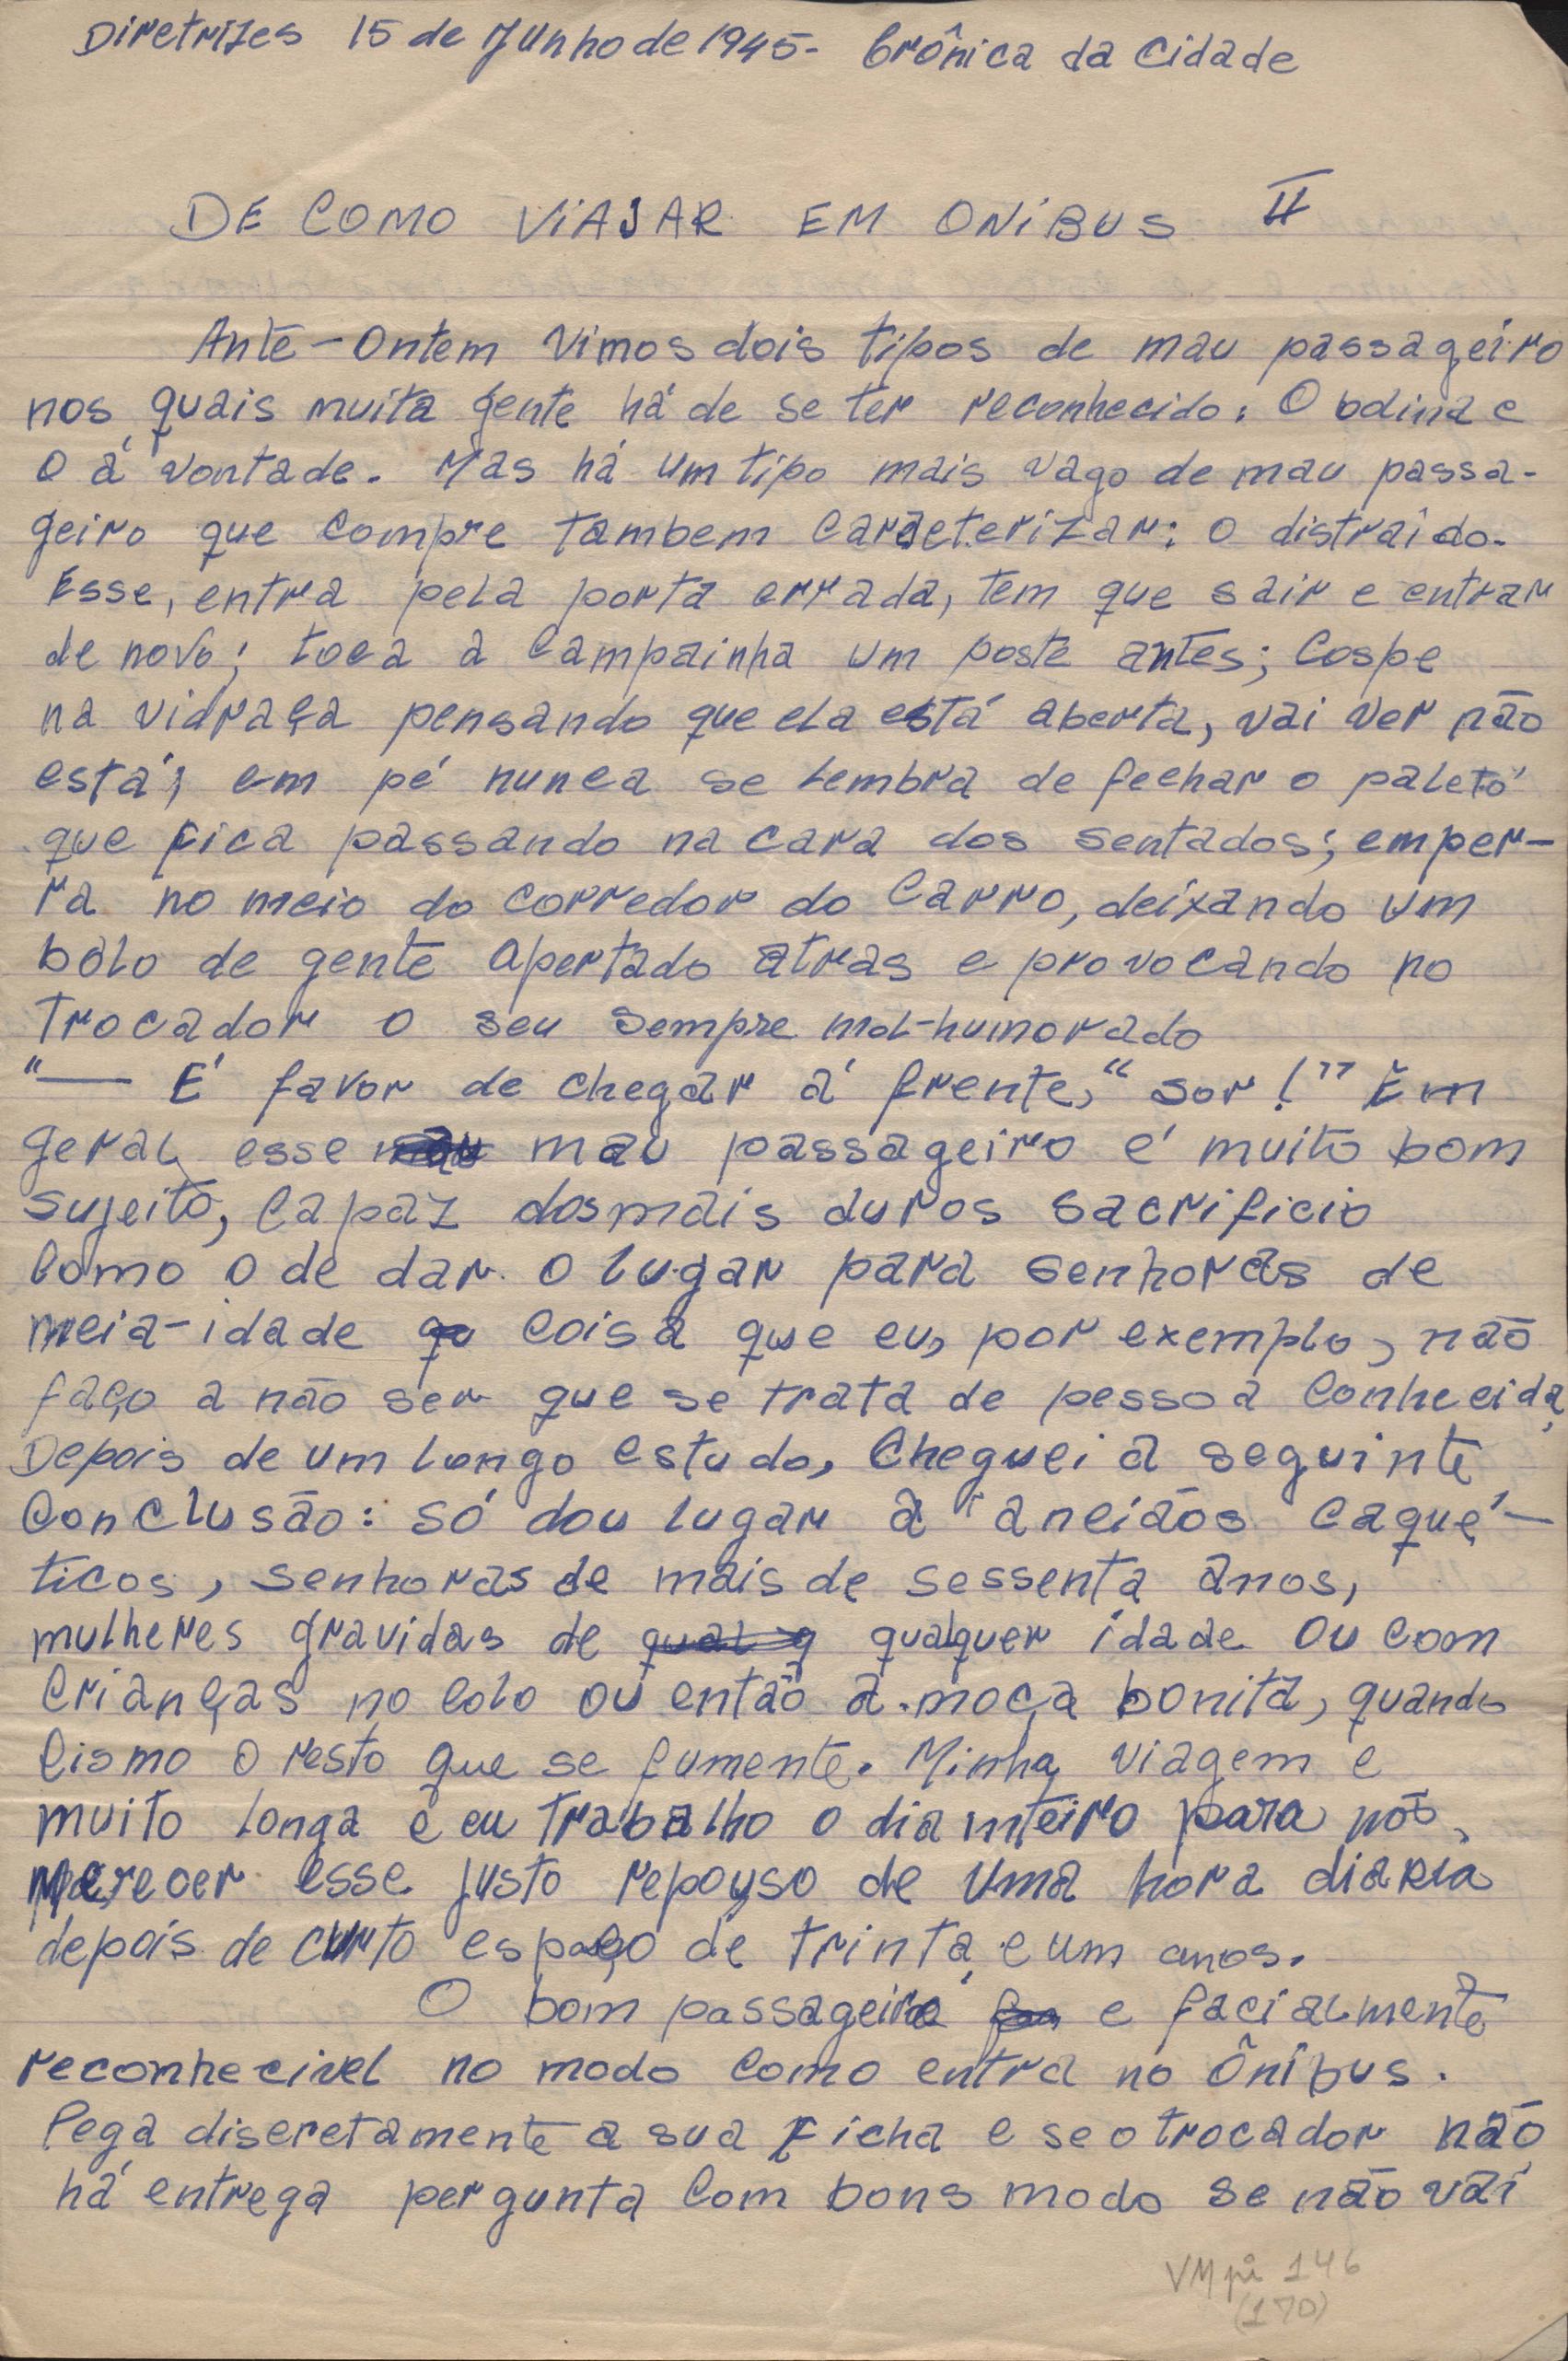 Diretrizes 15 de Junho de 1945- Crônica da Cidade
DE COMO VIAJAR EM ONIBUS II
Ante-Ontem vimos dois tipos de mau passageiro
nos quais muita gente há de se ter reconhecido: O bolina e
o á vontade. Mas há um tipo mais vago de mau passa-
geiro que compre tambem caracterizar: o distraído.
Esse, entra pela porta errada, tem que sair e entrar
de novo; toca a campainha um poste antes; cospe
na vidraça pensando que ela está aberta, vai ver não
está; em pé nunca se lembra de fechar o paletó
que fica passando na cara dos sentados; emper-
ra no meio do corredor do carro, deixando um
bolo de gente apertado atras e provocando no
trocador o seu sempre mal-humorado
"— É favor de chegar á frente," sor!" Em
geral esse mau passageiro é muito bom
sujeito, capaz dos mais duros sacrificio
como o de dar o lugar para senhoras de
meia-idade qu coisa que eu, por exemplo, não
faço a não ser que se trata de pessoa conhecida,
Depois de um longo estudo, cheguei a seguinte
conclusão: só dou lugar a anciãos caqué-
ticos, senhoras de mais de sessenta anos,
mulheres gravidas de qual q qualquer idade ou com
crianças no colo ou então a moça bonita, quando
cismo o resto que se fumente. Minha viagem e
muito longa e eu trabalho o dia inteiro para não
merecer esse justo repouso de uma hora diaria
depois de curto espaço de trinta e um anos.
O bom passageiro e facialmente
reconhecivel no modo como entra no Ônibus.
Pega discretamente a sua ficha e se o trocador não
há entrega pergunta com bons modo se não vai
VMpi 146
(170)